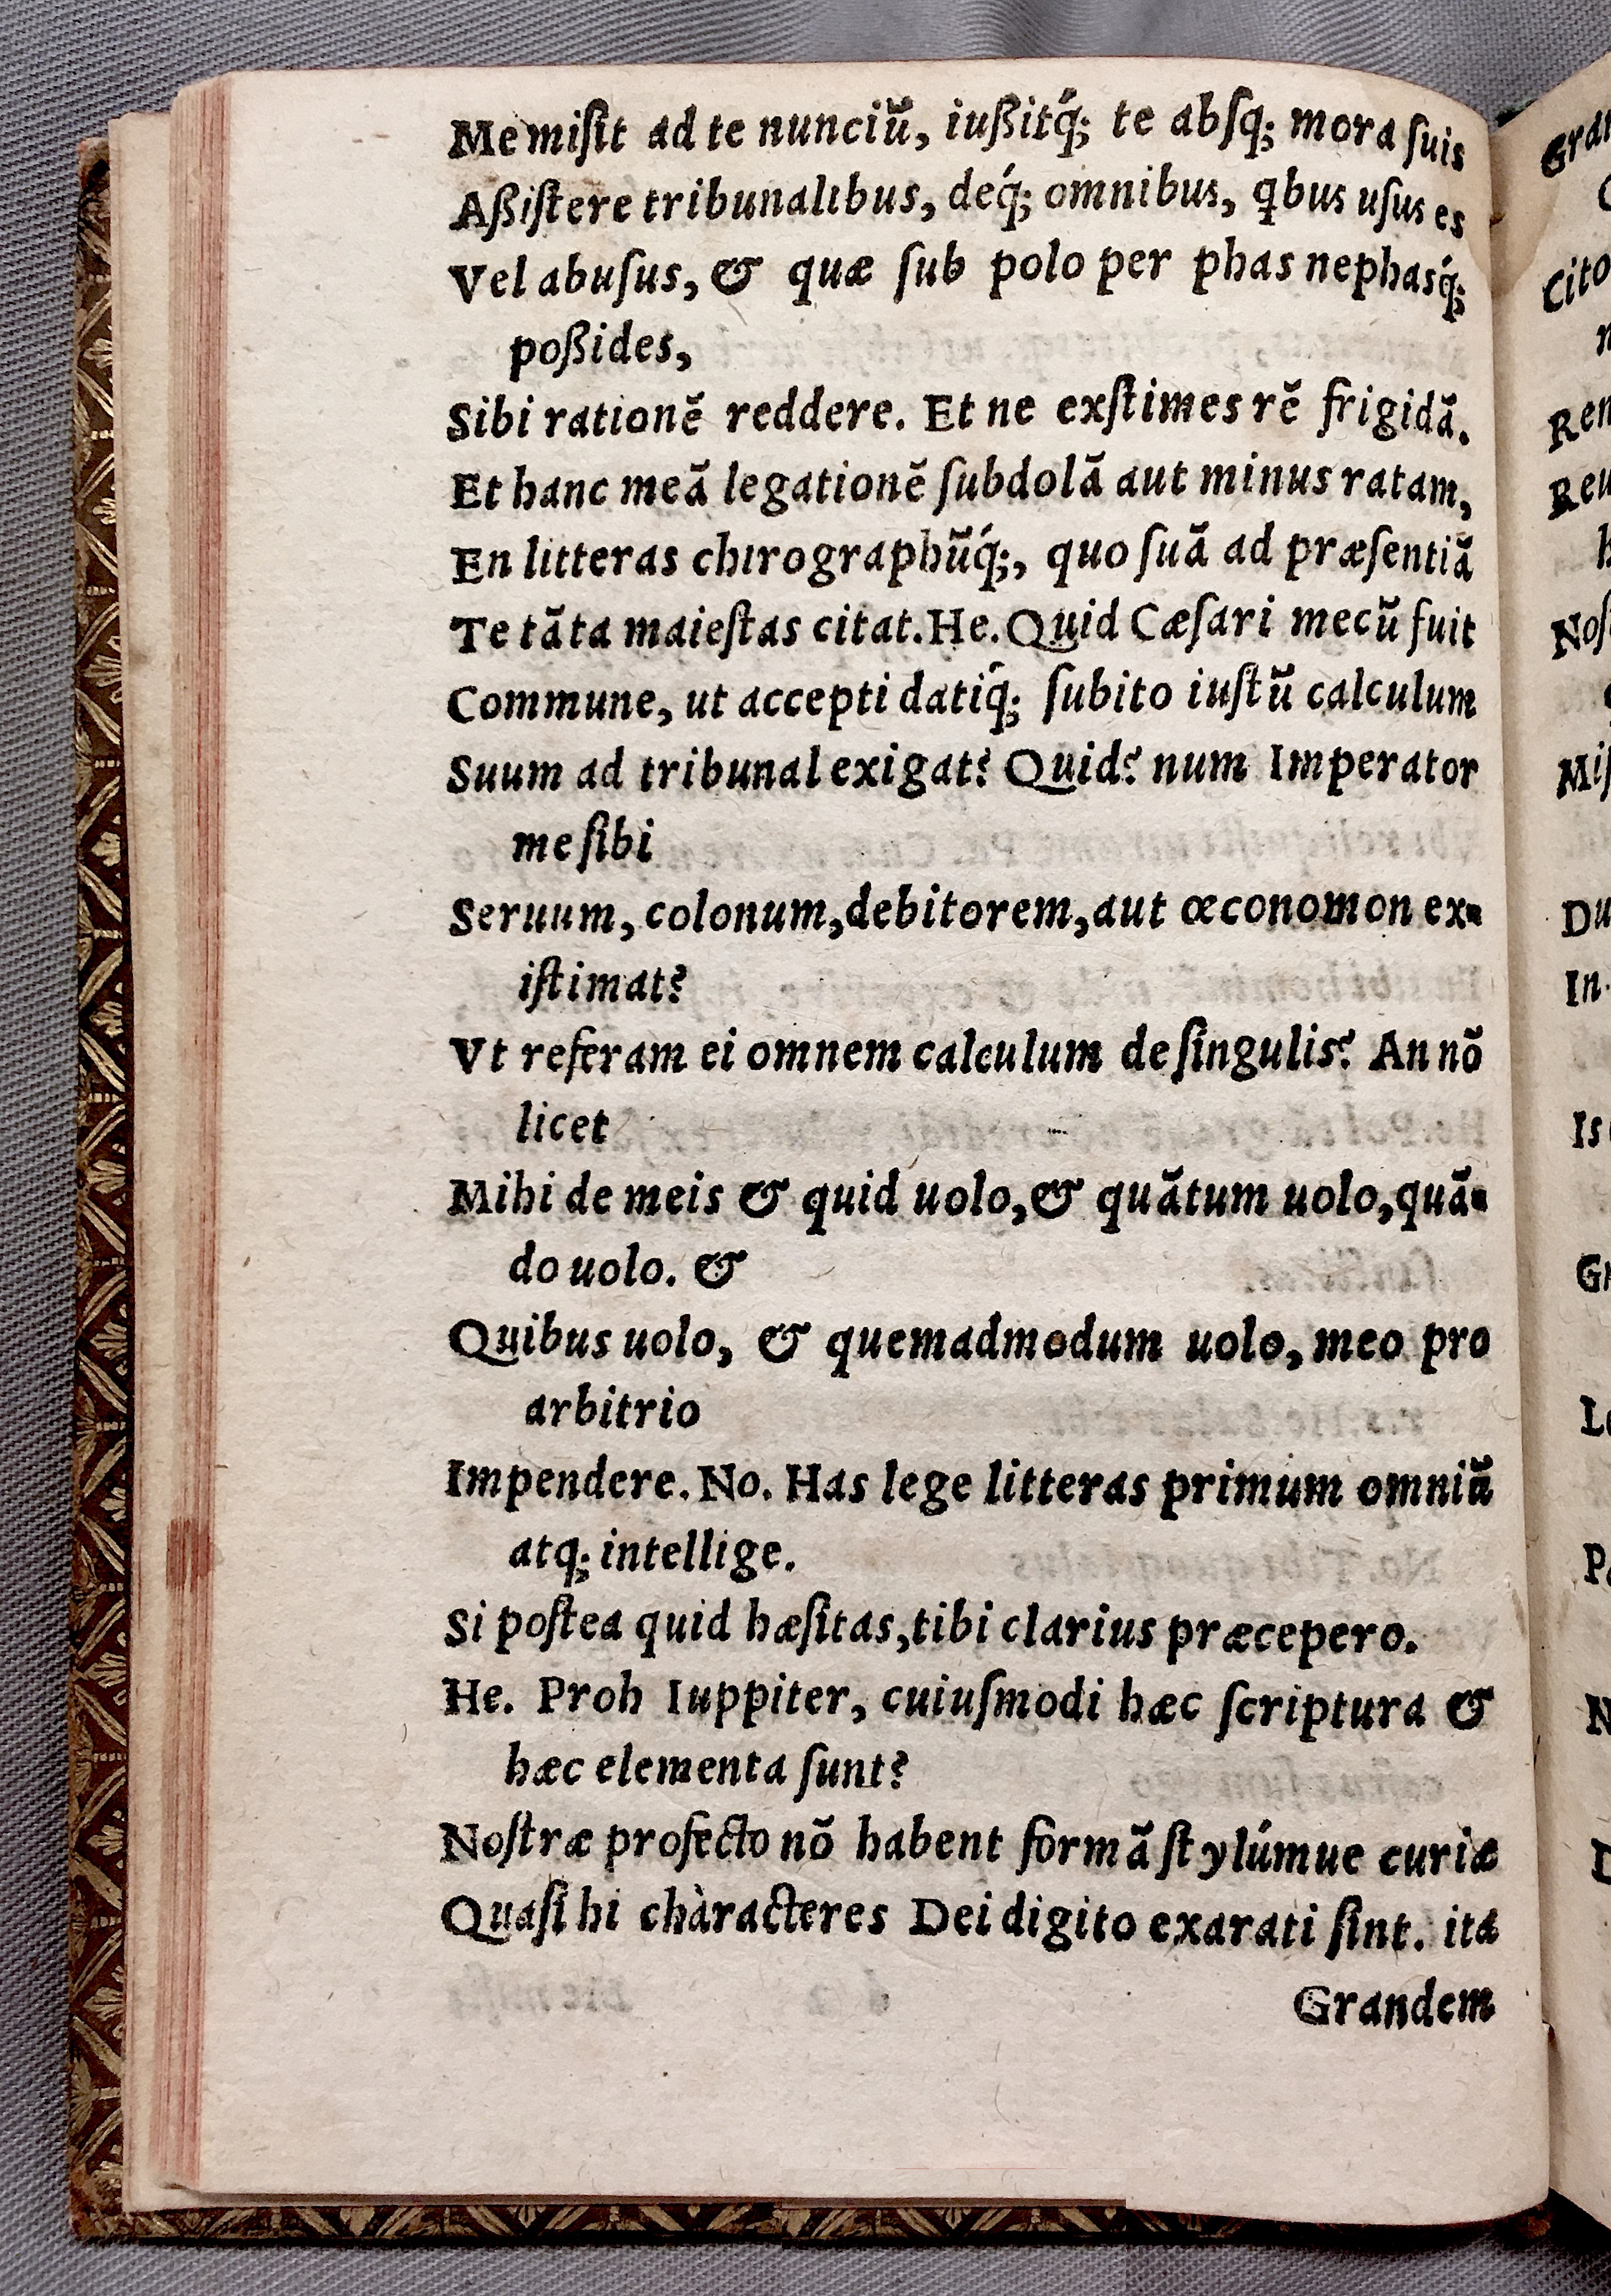 Me miſit ad te nunciũ, iußitq́; te abſq; mora ſuis
Aßiſtere tribunalibus, deq́; omnibus, qbus uſus es
Vel abuſus, & quæ ſub polo per phas nephasq́;
poßides,
Sibi rationẽ reddere. Et ne exſtimes rẽ frigidã.
Et hanc meã legationẽ ſubdolã aut minus ratam,
En litteras chirographũq́;, quo ſuã ad præſentiã
Te tãta maieſtas citat. He. Quid Cæſari mecũ fuit
Commune, ut accepti datiq́; ſubito iuſtũ calculum
Suum ad tribunal exigat? Quid? num Imperator
me ſibi
Seruum, colonum, debitorem, aut œconomon ex-
iſtimat?
Vt referam ei omnem calculum de ſingulis? An nõ
licet
Mihi de meis & quid uolo, & quãtum uolo, quã-
do uolo. &
Quibus uolo, & quemadmodum uolo, meo pro
arbitrio
Impendere. No. Has lege litteras primum omniũ
atq; intellige.
Si poſtea quid hæſitas, tibi clarius præcepero.
He. Proh Iuppiter, cuiuſmodi hæc ſcriptura &
hæc elementa ſunt?
Noſtræ profecto nõ habent formã ſtylúmue curiæ
Quaſi hi chàracteres Dei digito exarati ſint. ita
Grandem